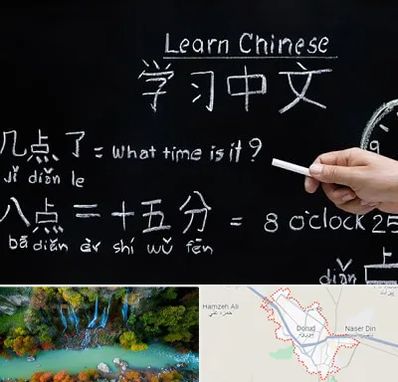 Learn Chinese
学习中文
几点了 = What time is it?
Jǐ diǎn le
9
八点二十五分 = 8 o'clock 25
bā diǎn èr shí wǔ fēn
diǎn
上
Hamzeh Ali
حمزه علی
Dorud
Naser Din